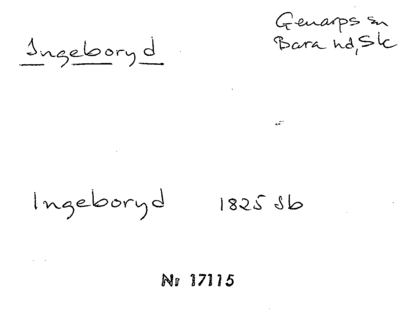 Ingeboryd
Genarps sn
Bara hd, Sk
Ingeboryd 1825 Jb
Nr 17115